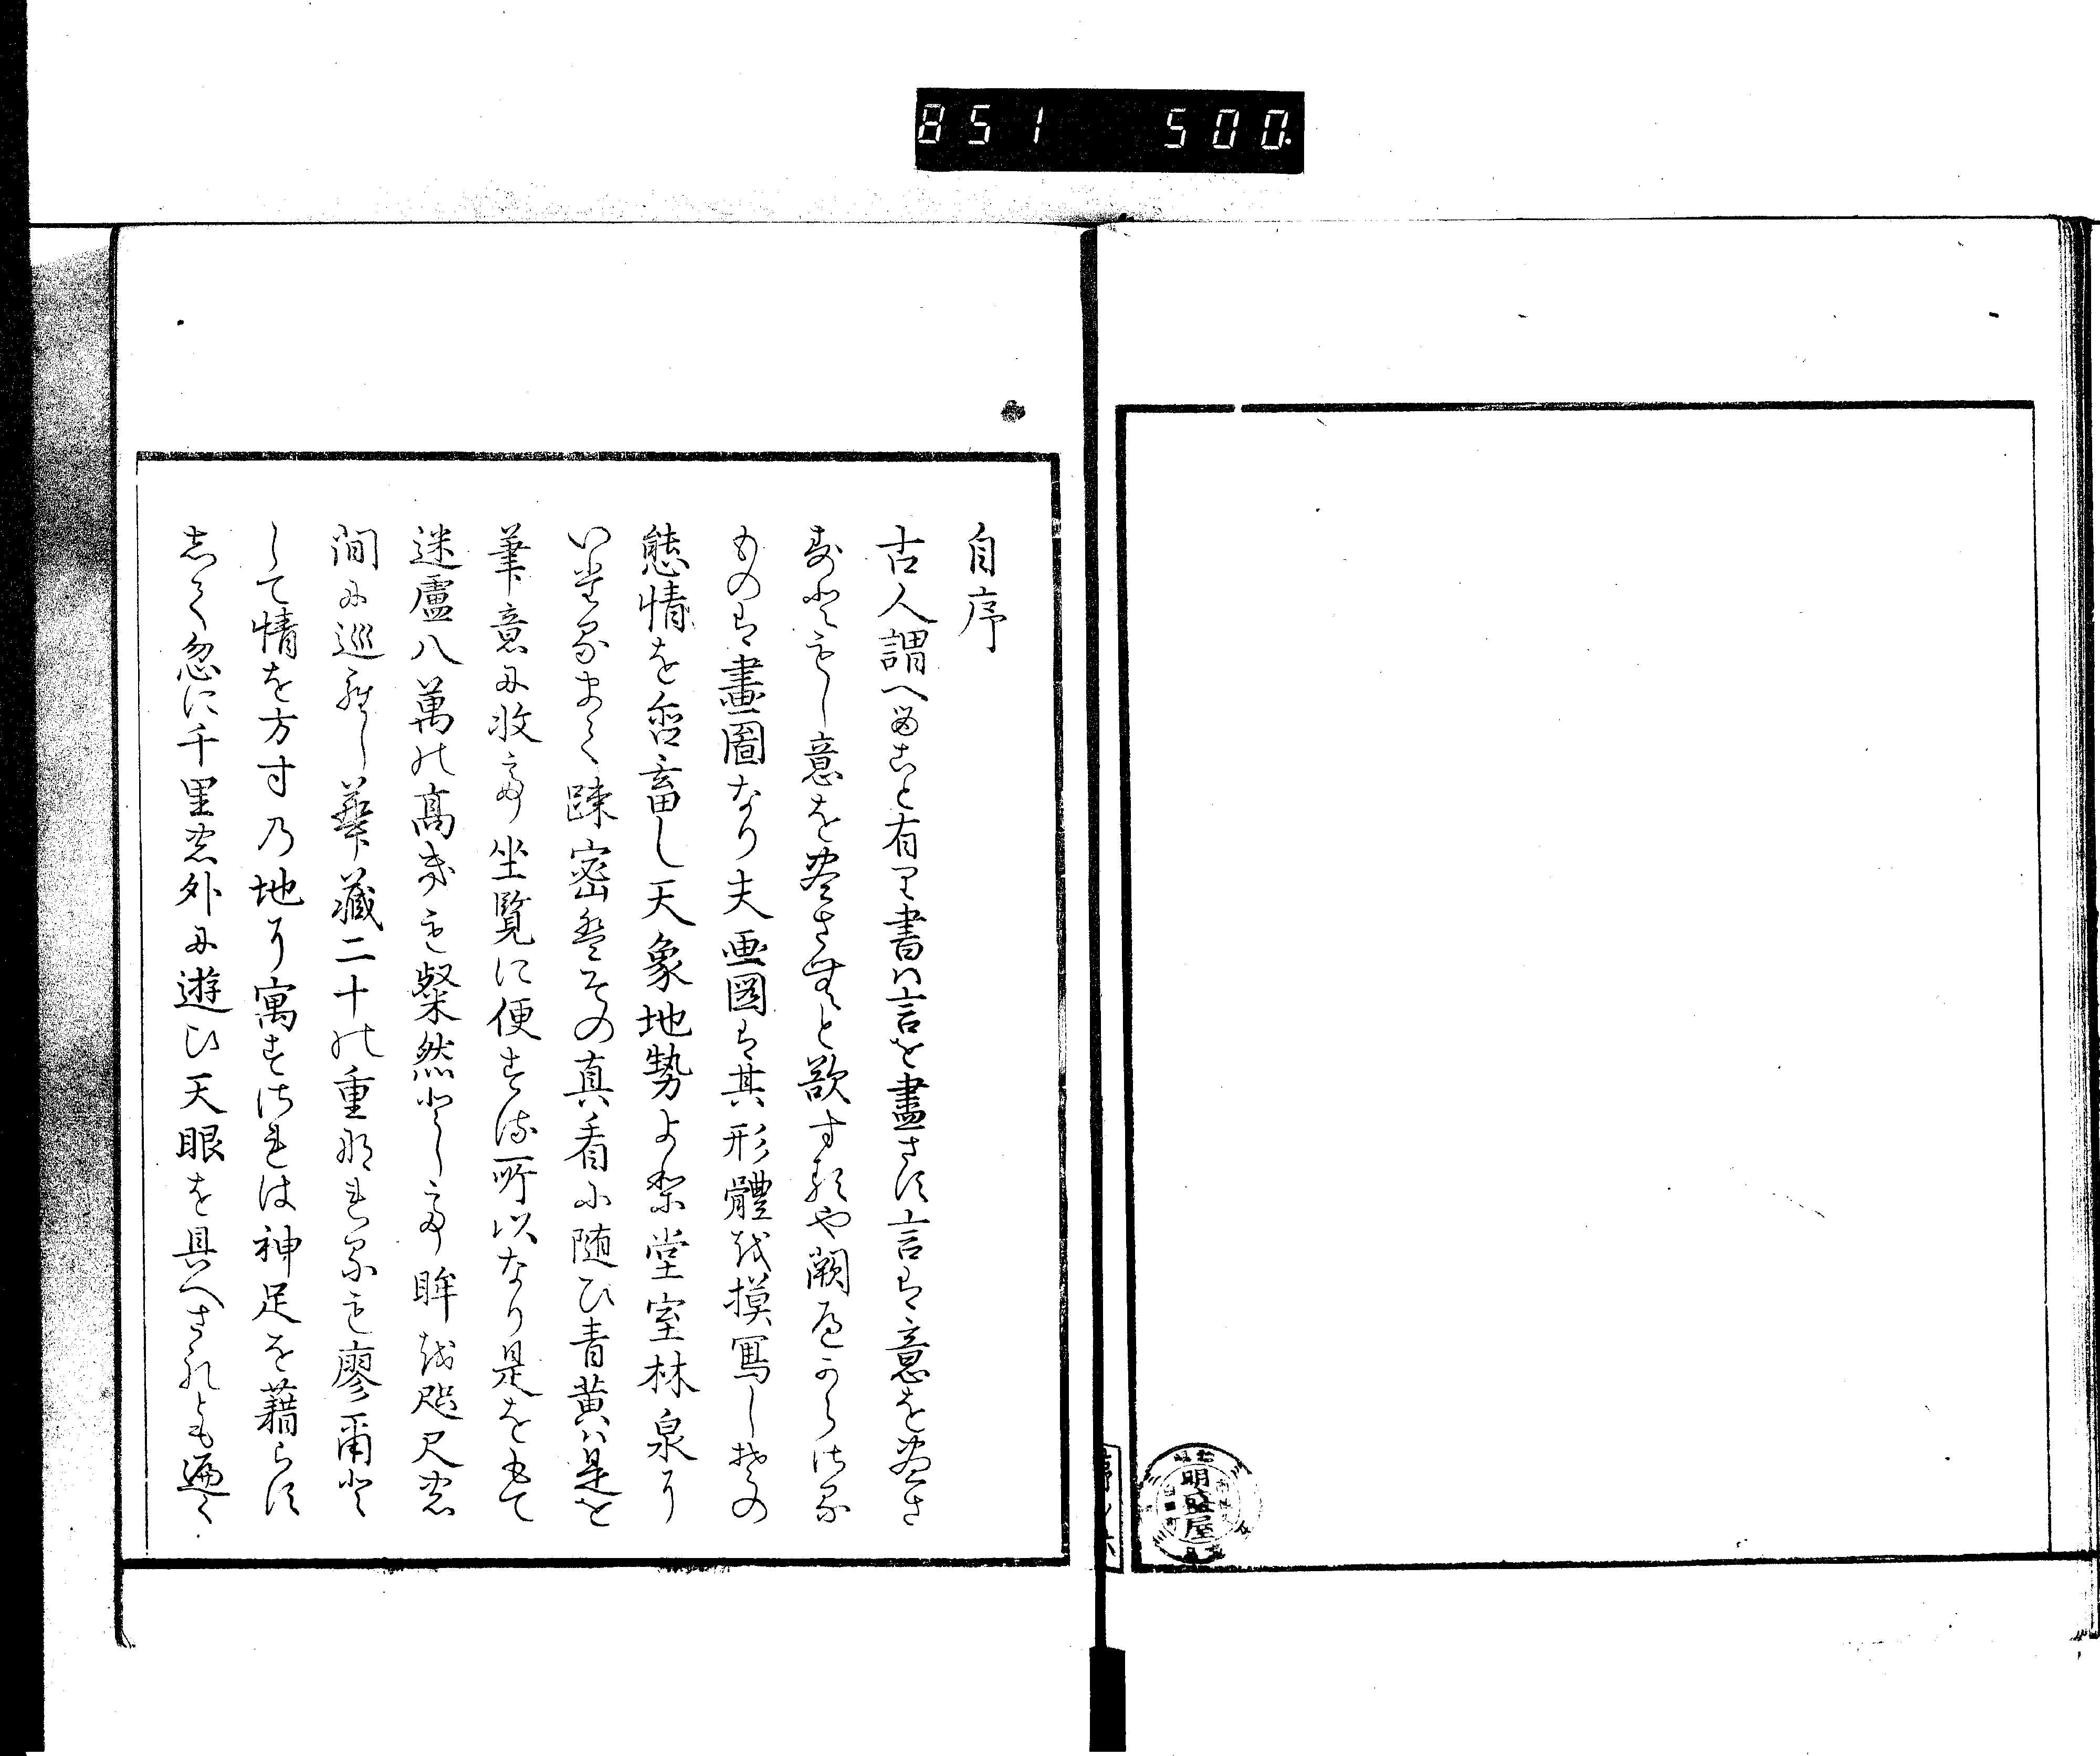 851 500.
明盛屋
自序
古人謂へることと有り書は言を盡さす言は意を尽さ
すとしかし意を尽さむと欲するや闕へからさる
ものは畫圖なり夫画図は其形體を摸冩しその
態情を含畜し天象地勢より堂室林泉に
いたるまて疎密その真看に随ひ青黄は是を
筆意に收て坐覧に便する所以なり是をもて
迷盧八萬の高きも粲然として眸を咫尺の
間に巡らし華藏二十の重なれるも廖爾と
して情を方寸乃地に寓すされは神足を藉らす
して忽に千里の外に遊ひ天眼を具へされとも遍く